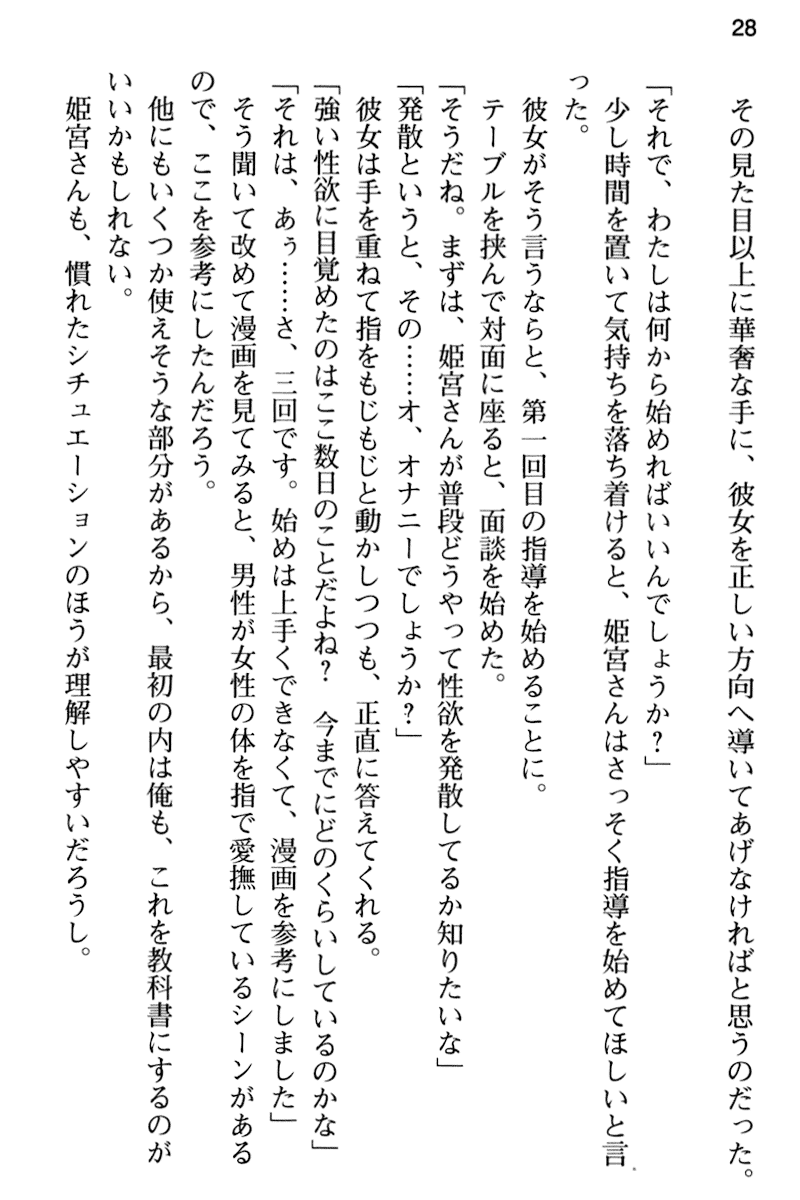 28
その見た目以上に華奢な手に、彼女を正しい方向へ導いてあげなければと思うのだった。
「それで、わたしは何から始めればいいんでしょうか？」
少し時間を置いて気持ちを落ち着けると、姫宮さんはさっそく指導を始めてほしいと言
った。
彼女がそう言うならと、第一回目の指導を始めることに。
テーブルを挟んで対面に座ると、面談を始めた。
「そうだね。まずは、姫宮さんが普段どうやって性欲を発散してるか知りたいな」
「発散というと、その……オ、オナニーでしょうか？」
彼女は手を重ねて指をもじもじと動かしつつも、正直に答えてくれる。
「強い性欲に目覚めたのはここ数日のことだよね？　今までにどのくらいしているのかな」
「それは、あぅ……さ、三回です。始めは上手くできなくて、漫画を参考にしました」
そう聞いて改めて漫画を見てみると、男性が女性の体を指で愛撫しているシーンがある
ので、ここを参考にしたんだろう。
他にもいくつか使えそうな部分があるから、最初の内は俺も、これを教科書にするのが
いいかもしれない。
姫宮さんも、慣れたシチュエーションのほうが理解しやすいだろうし。